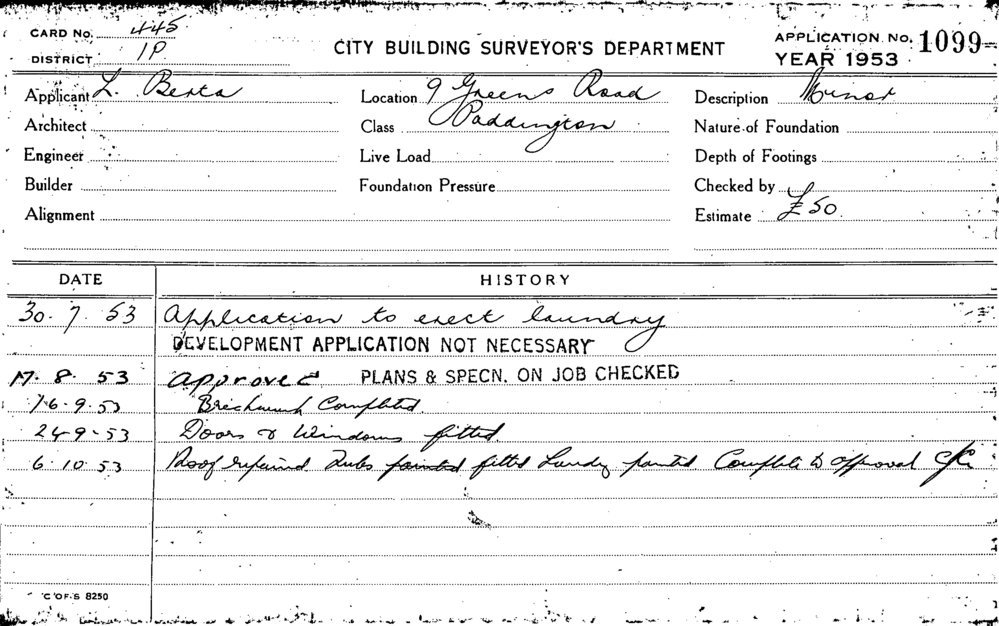 CARD No. 445
DISTRICT 1P.
CITY BUILDING SURVEYOR'S DEPARTMENT
APPLICATION No. 1099
YEAR 1953
Applicant L. Berta
Location 9 Greens Road
Description Minor
Architect
Class Paddington
Nature of Foundation
Engineer
Live Load
Depth of Footings
Builder
Foundation Pressure
Checked by
Alignment
Estimate £50.
DATE HISTORY
30.7.53 Application to erect laundry
DEVELOPMENT APPLICATION NOT NECESSARY
17.8.53 Approved PLANS & SPECN. ON JOB CHECKED
16.9.53 Brickwork Completed.
24-9-53 Doors & Windows fitted
6.10.53 Roof repaired Tubs fitted painted Complete to approval
C OF S 8250